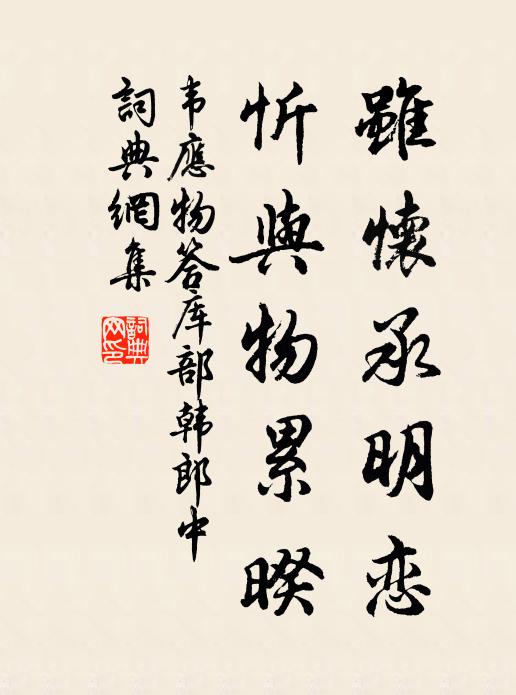 雖懷承明恋
忻與物累暌
韦應物答库部韩郎中
詞典網集
詞典网印